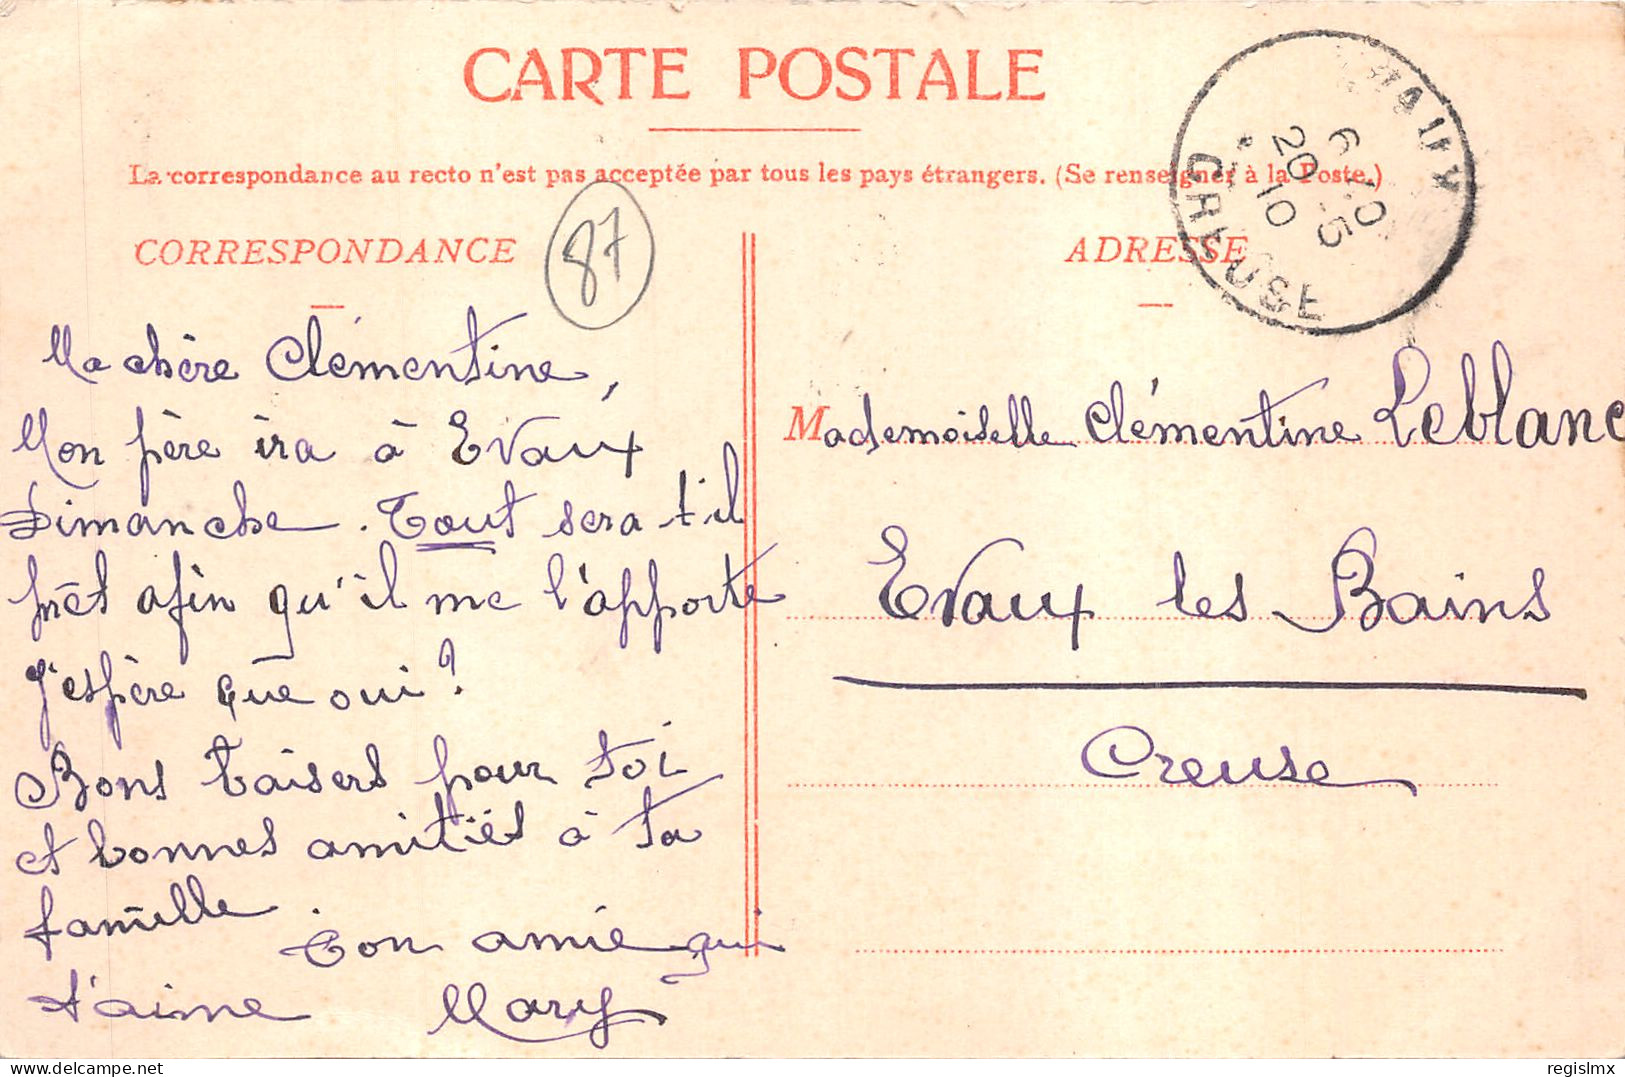 CARTE POSTALE
La correspondance au recto n'est pas acceptée par tous les pays étrangers. (Se renseigner à la Poste.)
CORRESPONDANCE
87
Ma chère Clémentine,
Mon père ira à Evaux
Dimanche. Tout sera t'il
prêt afin qu'il me l'apporte
J'espère que oui?
Bons baisers pour toi
et bonnes amitiés à ta
famille. Ton amie qui
t'aime Mary
ADRESSE
Mademoiselle Clémentine Leblanc
Evaux les Bains
Creuse
6 10
20 -5
10
CREUSE
delcampe.net
regislmx